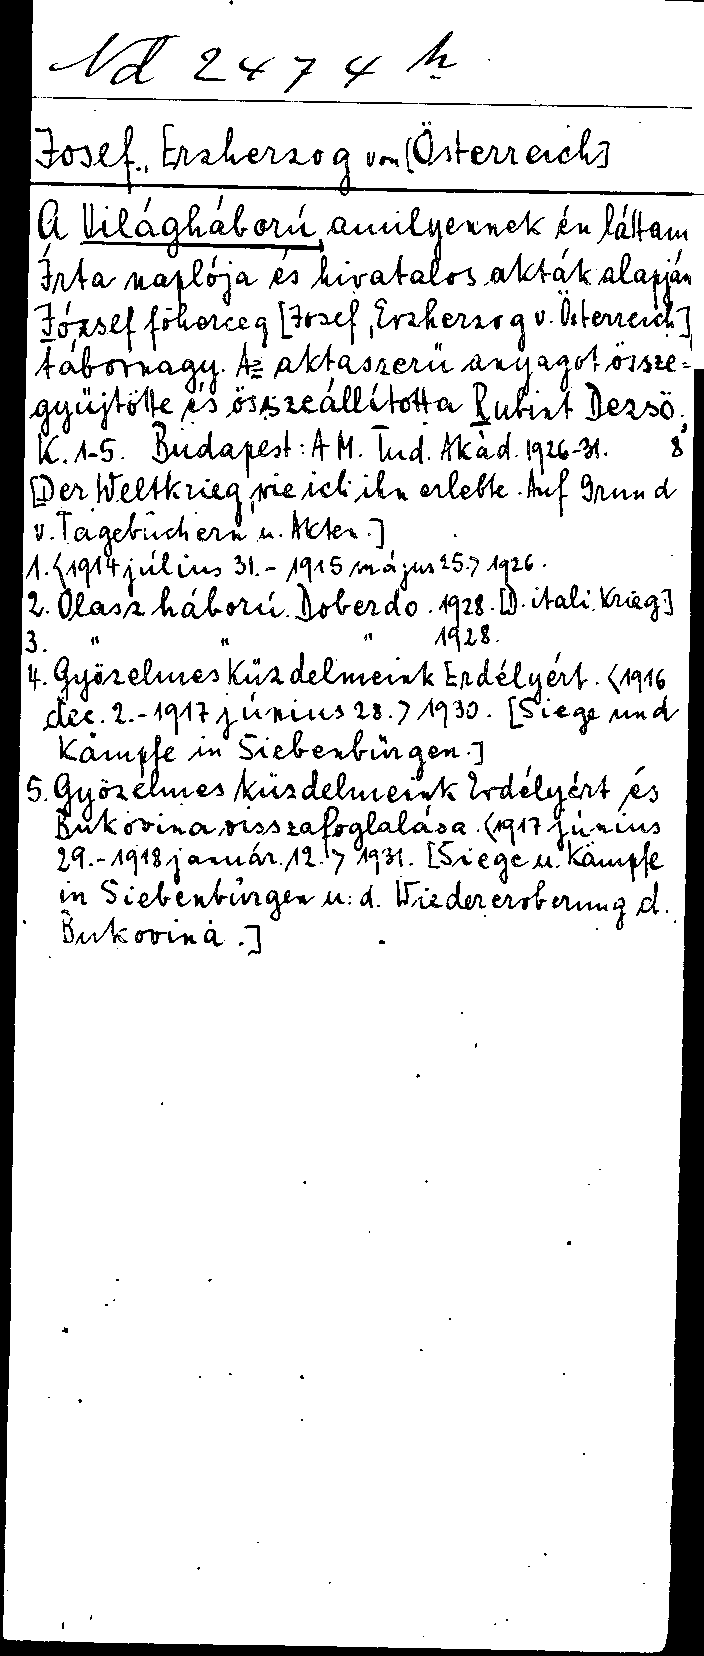 Nd 2474 h
Josef, Erzherzog von [Österreich]
A Világháború, amilyennek én láttam
Írta naplója és hivatalos akták alapján
József főherceg [Josef, Erzherzog v. Österreich]
tábornagy. Az aktaszerü anyagot össze=
gyüjtötte és összeállította Rubint Dezsö.
K. 1-5. Budapest: A M. Tud. Akad. 1926-31. 8°
[Der Weltkrieg, wie ich ihn erlebte. Auf Grund
v. Tagebüchern u. Akten.]
1. <1914 július 31.- 1915 május 25.> 1926.
2. Olasz háború. Doberdo. 1928. [D. itali. Krieg.]
3. " " " 1928.
4. Gyözelmes Küzdelmeink Erdélyért. <1916
dec. 2.-1917 június 28.> 1930. [Siege und
Kämpfe in Siebenbürgen.]
5. Gyözelmes küzdelmeink Erdélyért és
Bukovina visszafoglalása. <1917 június
29.-1918 január. 12.> 1931. [Siege u. Kämpfe
in Siebenbürgen u. d. Wiedereroberung d.
Bukovina.]